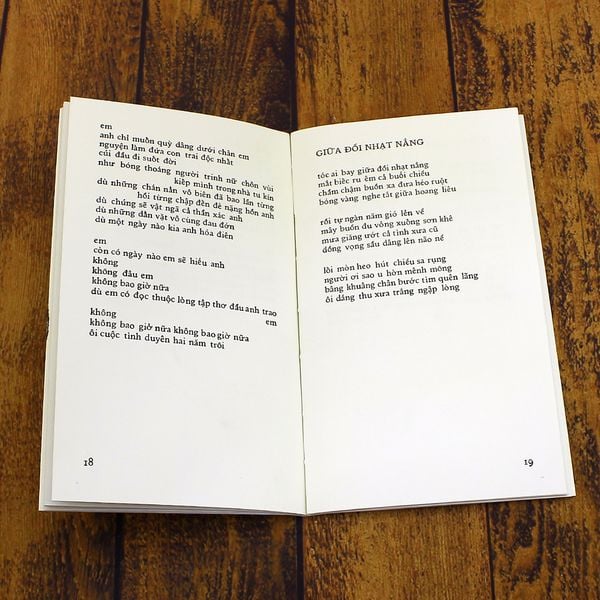 em
anh chỉ muốn quỳ dâng dưới chân em
nguyện làm đứa con trai độc nhất
cúi đầu đi suốt đời
như bóng thoáng người trinh nữ chôn vùi
kiếp mình trong nhà tu kín
dù những chán nản vô biên đã bao lần từng
hồi từng chập đến đè nặng hồn anh
dù chúng sẽ vật ngã cả thần xác anh
dù những dằn vặt vô cùng đau đớn
dù một ngày nào kia anh hóa điên
em
còn có ngày nào em sẽ hiểu anh
không
không đâu em
không bao giờ nữa
dù em có đọc thuộc lòng tập thơ đầu anh trao
em
không
không bao giờ nữa không bao giờ nữa
ôi cuộc tình duyên hai năm trời
18
GIỮA ĐỒI NHẠT NẮNG
tóc ai bay giữa đồi nhạt nắng
mắt biếc ru êm cả buổi chiều
chầm chậm buồn xa đưa héo ruột
bóng vàng nghe tắt giữa hoang liêu
rồi tự ngàn năm gió lên về
mây buồn du võng xuống sơn khê
mưa giăng ướt cả tình xưa cũ
đồng vọng sầu dâng lên não nề
lối mòn heo hút chiều sa rụng
người ơi sao u hờn mênh mông
bâng khuâng chân bước tìm quên lãng
ôi dáng thu xưa trắng ngập lòng
19